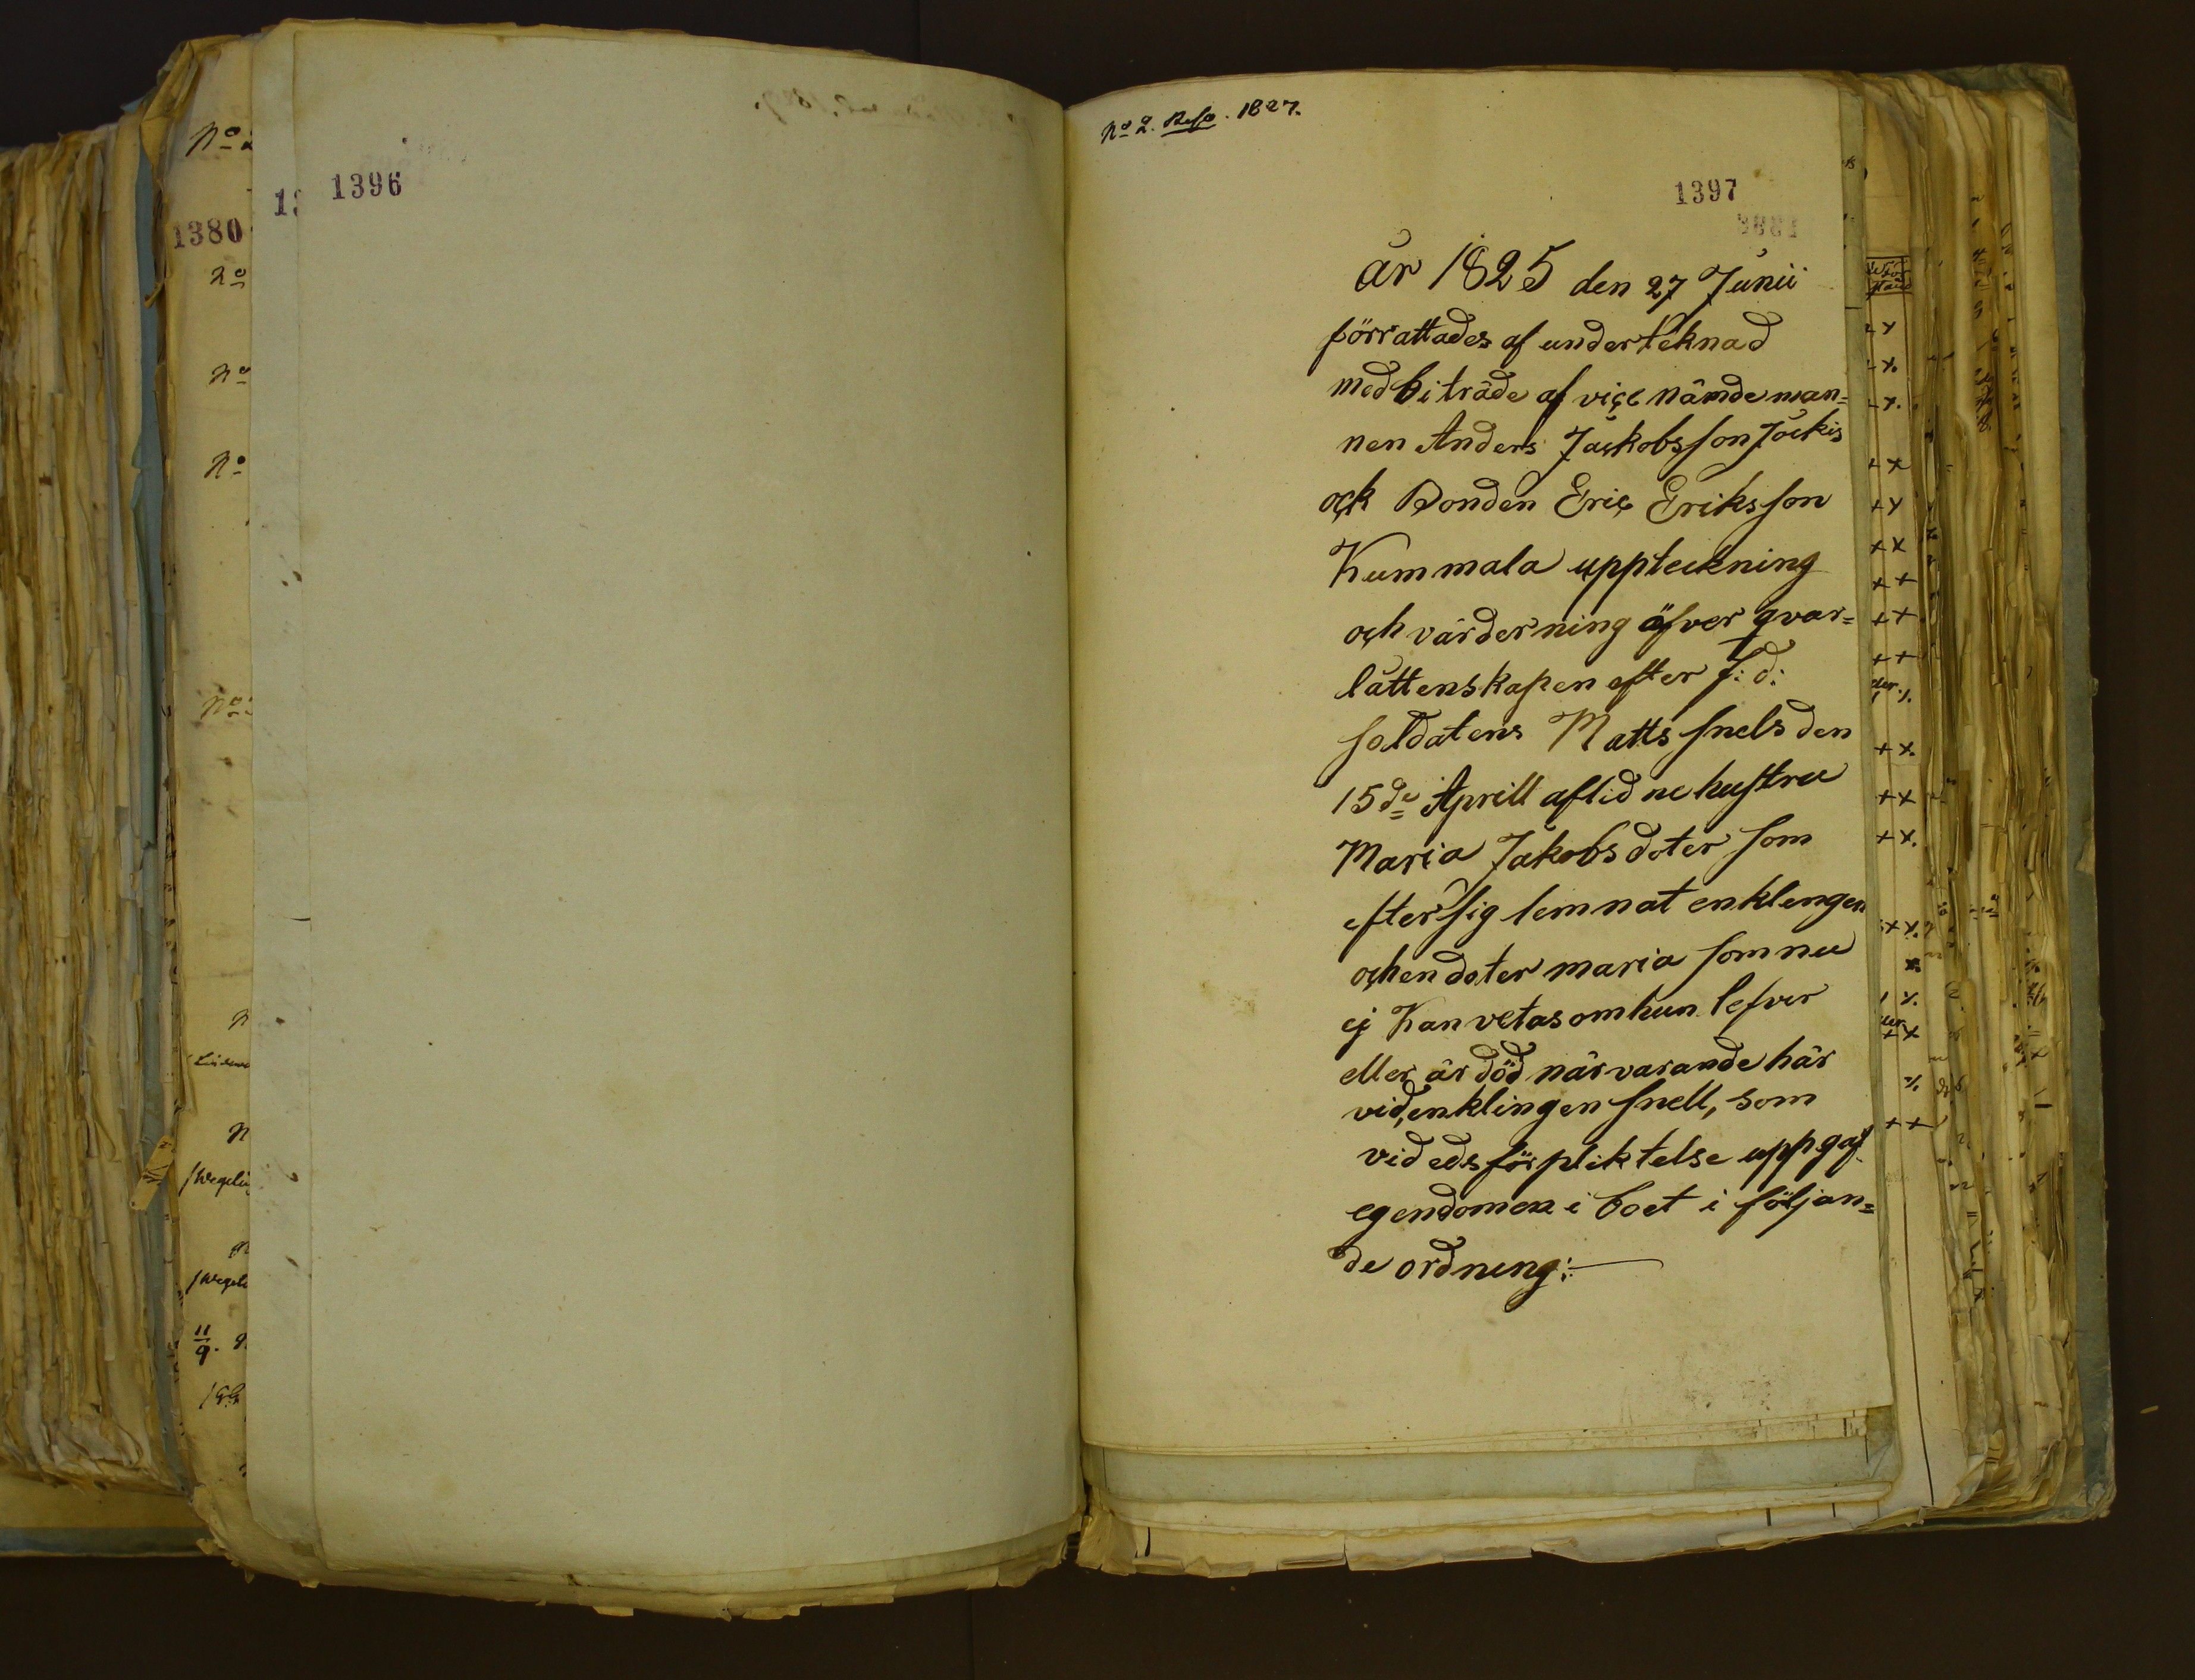 No
1380
2o
No
No
No
11/9.
1396
No 2. Resp. 1827.
1397
år 1825 den 27 Junii
förrattades af underteknad
med biträde af viçe nämdeman=
nen Anders Jackobsson Jockis
oçk Bonden Eriç Eriksson
Kummala uppteckning
oçh värderning äfver qvar=
låttenskapen efter f: d:
soldatens Matts snels den
15de Aprill aflidne hustru
Maria Jakobsdoter som
efter sig lemnat enklengen
oçh en doter maria som nu
ej Kan vetas om hun lefver
eller är död närvarande här
vid, enklingen snell, som
vid edsförpliktelse uppgaf
egendomen i boet i följan=
de ordning: